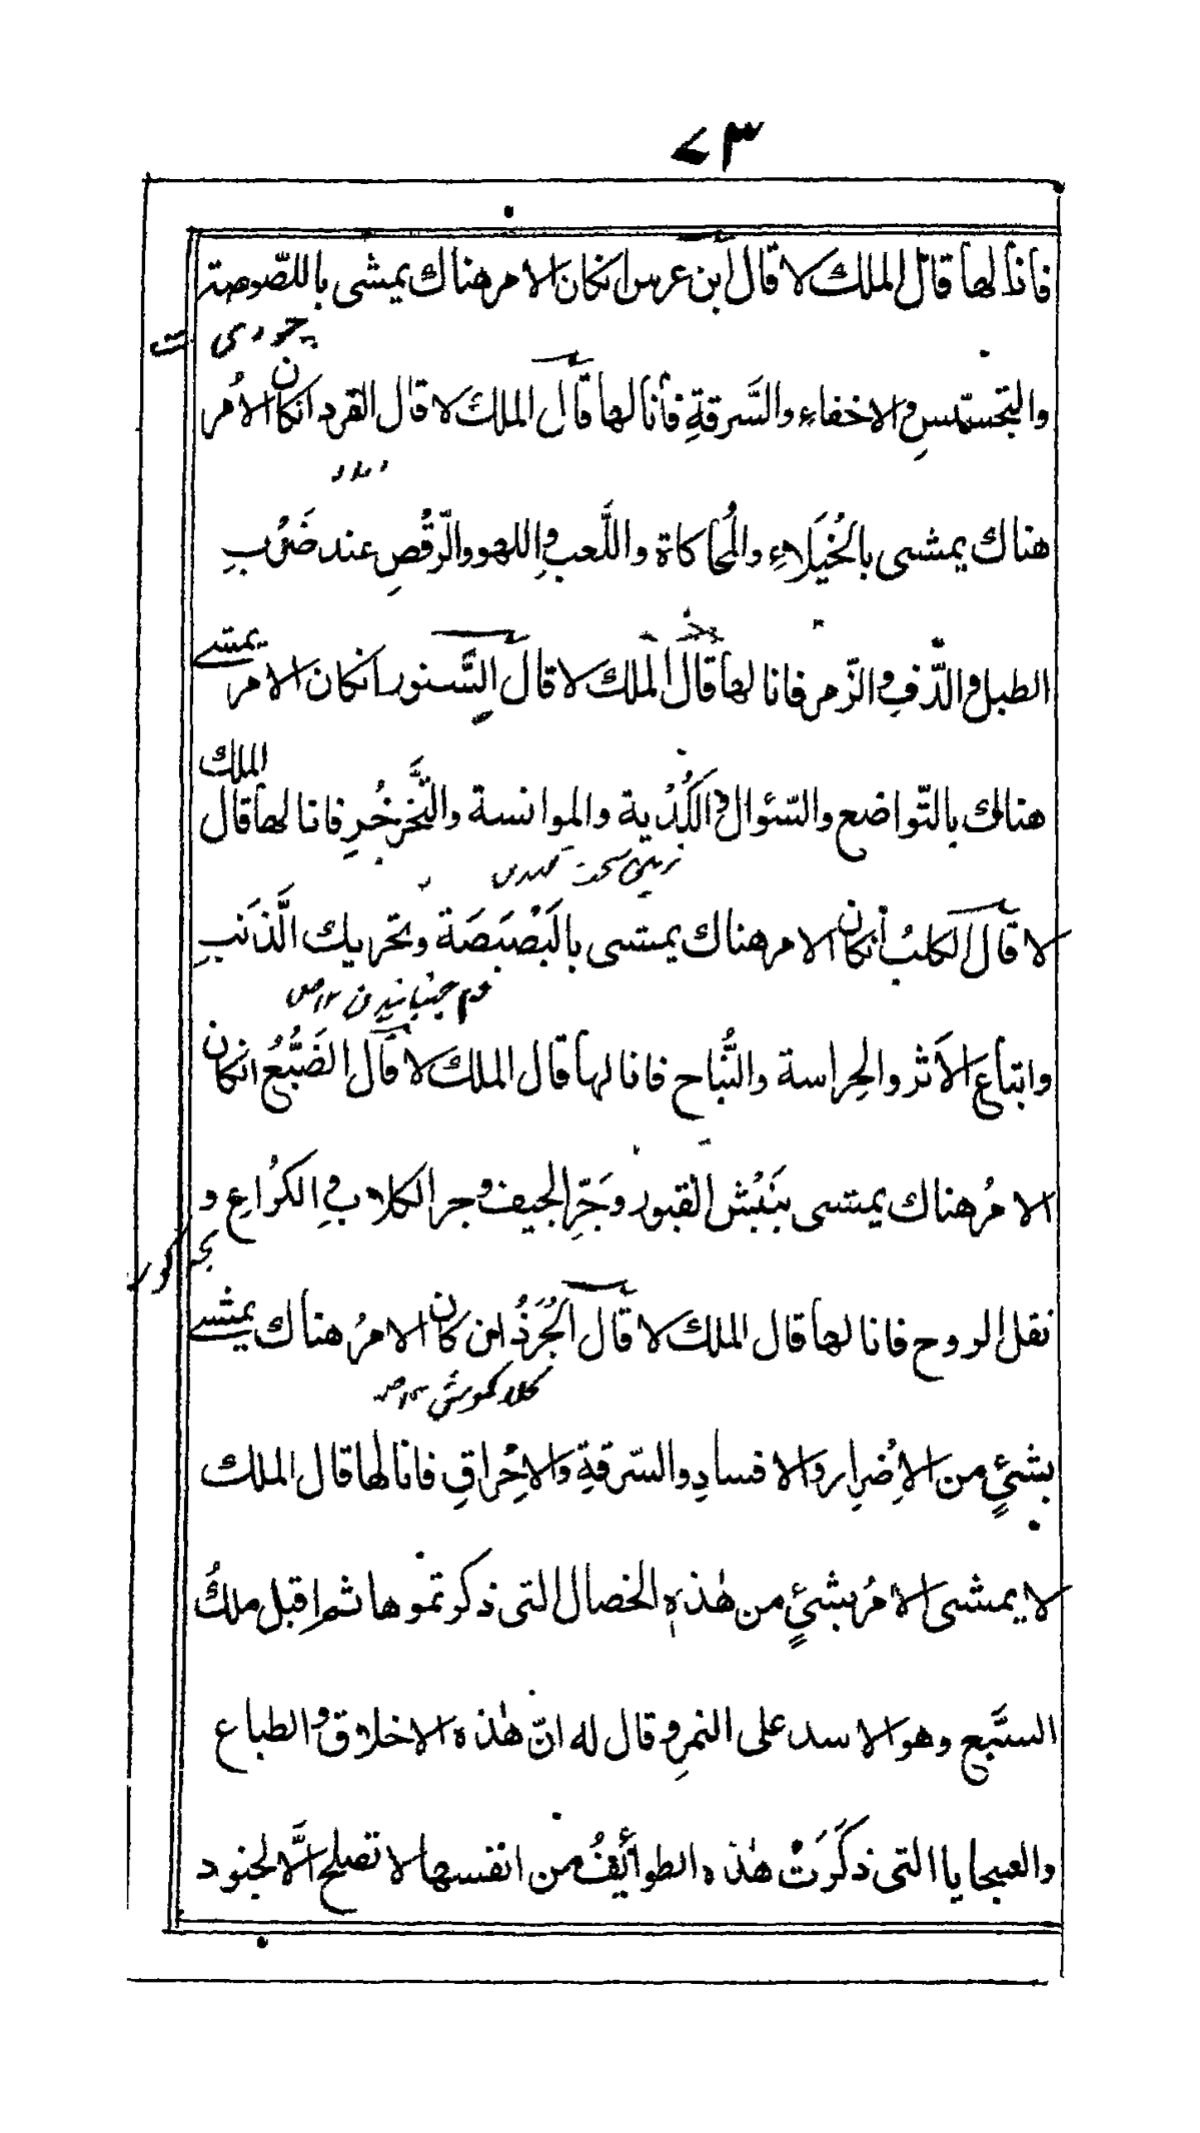 ٧٣
فانا لها قال الملك لا قال ابن عرس انكان الامر هناك يمشى باللصّوصة
والتجسّس والاخفاء والسَّرقةِ فأنا لها قال الملك لا قال القرد انكان الامُر
هناك يمشى بالخُيَلاءِ والمُحاكاة واللَّعبِ واللهو والرّقُصِ عند ضَرُبِ
الطبل والدّفِ والزّمر فانا لها قال الملك لا قال السِّنور انكان الامر يمشے
هناك بالتّواضع والسّئوال والكُدُية والموانسة والتَّخرخُرِ فانا لها قال الملك
لا قال الكلبُ أنكان الامر هناك يمشى بالبَصْبَصَة وتحريك الَّذَنَبِ
دم جنبانيدن ١٢ ص
وابتاع الاَثر والحِراسة والنُّباح فانا لها قال الملك لا قال الضَبُّعُ انكان
الامرُ هناك يمشى بنَبُش القبور وجَرِّ الجيف وجر الكلابِ والكرُاعِ و
نقل الروح فانا لها قال الملك لا قال الجُرَذُ ان كان الامرُ هناك يمشے
كلا كموش ١٢ ص
بشئٍ من الاِضرِار والافسادِ والسّرقةِ والاِحْراقِ فانا لها قال الملك
لا يمشى الامرُ بشئٍ من هٰذهِ الخصال التى ذكرتموها ثم اقبل ملكُ
السَّبع وهو الاسد على النمرِ وقال له انّ هٰذه الاخلاق والطباع
والسجايا التى ذكَرَتْ هٰذه الطوائفُ من انفسها لا تصلح الَّا لجنود